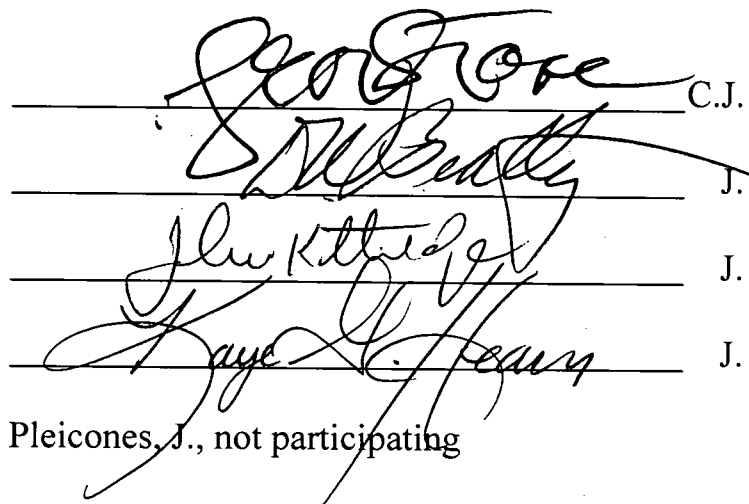 C.J.
D W Beatty J.
John Kittredge J.
Kaye G. Hearn J.
Pleicones, J., not participating